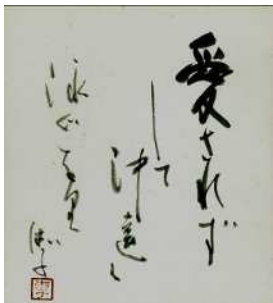 愛されず
して沖遠く
泳ぐなり
湘子